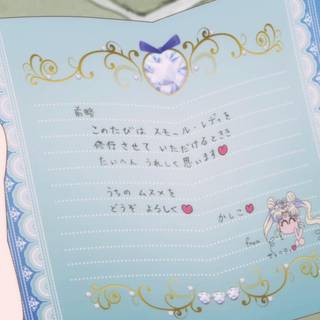 前略
このたびは スモール・レディを
修行させて いただけるとき
たいへん うれしく思います♥
うちの ムスメを
どうぞ よろしく♥
かしこ♥
from